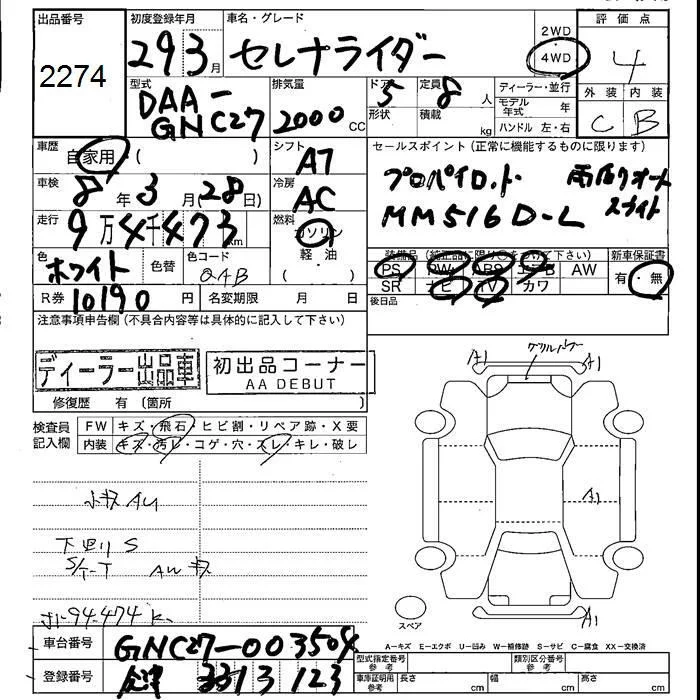 出品番号 2274
初度登録年月 29 3 月
車名・グレード セレナライダー
2WD
4WD
評価点 4
外装 内装
C B
型式 DAA-GNC27
排気量 2000 CC
ドア 5
形状
定員 8 人
積載 kg
ディーラー・並行
モデル年式 年
ハンドル 左・右
車歴 自家用 ( )
シフト A7
セールスポイント (正常に機能するものに限ります)
プロパイロット 両側オート
MM516D-L スライド
車検 8 年 3 月 28 日)
冷房 AC
走行 9万4千473 km
燃料 ガソリン
軽・油
色 ホワイト 色替 色コード QAB
R券 10190 円 名変期限 月 日
装備品 (純正品に限り○をつけて下さい) 新車保証書
PS PW ABS エアB AW 有・無
SR ナビ TV カワ
後日品
注意事項申告欄 (不具合内容等は具体的に記入して下さい)
ディーラー出品車
初出品コーナー
AA DEBUT
修復歴 有 (箇所 )
検査員記入欄
FW キズ・飛石・ヒビ割・リペア跡・X要
内装 キズ・汚レ・コゲ・穴・スレ・キレ・破レ
A1
A1
A1
A1
小キズ AU
下廻り S
S/T-T AW キズ
スペア
A-キズ E-エクボ U-凹み W-補修跡 S-サビ C-腐食 XX-交換済
車台番号 GNC27-003504
登録番号 会津 3313123
型式指定番号 参考 類別区分番号 参考
車庫証明用 参考 長さ cm 幅 cm 高さ cm